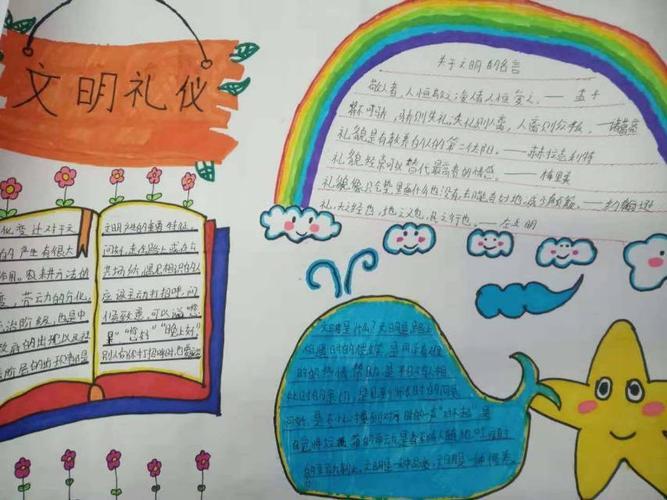 文明礼仪
关于文明的名言
敬人者,人恒敬之;爱人者人恒爱之。——孟子
骄则失礼,失礼则人离,人离则众叛。——诸葛亮
礼貌是有教养的人的第二个太阳。——赫拉克利特
礼貌经常可以替代最高贵的情感。——梅里美
礼貌像只气垫里面什么也没有,却能奇妙地减少颠簸。——约翰逊
礼,天之经也,地之义也,民之行也。——左
化变迁对于文
的产生有很大
作用。农耕方法的
劳动的分化,
阶级,
政府的出现以及
阶层的出现都是
文明之的重要特征。
问好,走在路上或在公
共场所,遇见相识的人
应该主动打招呼,问
候致意,可以说“您
早”“您好”“晚上好”
别人向你打招呼时,也要
文明是什么?文明是路上
相遇时的微笑,是同学有难
时的热情帮助,是平时与人相
处时的亲切,是见到师长时的问
好,是不小心撞到对方时的一声“对不起”,是
自觉将垃圾
的主动制止。文明是一种品质,文明是一种修养。